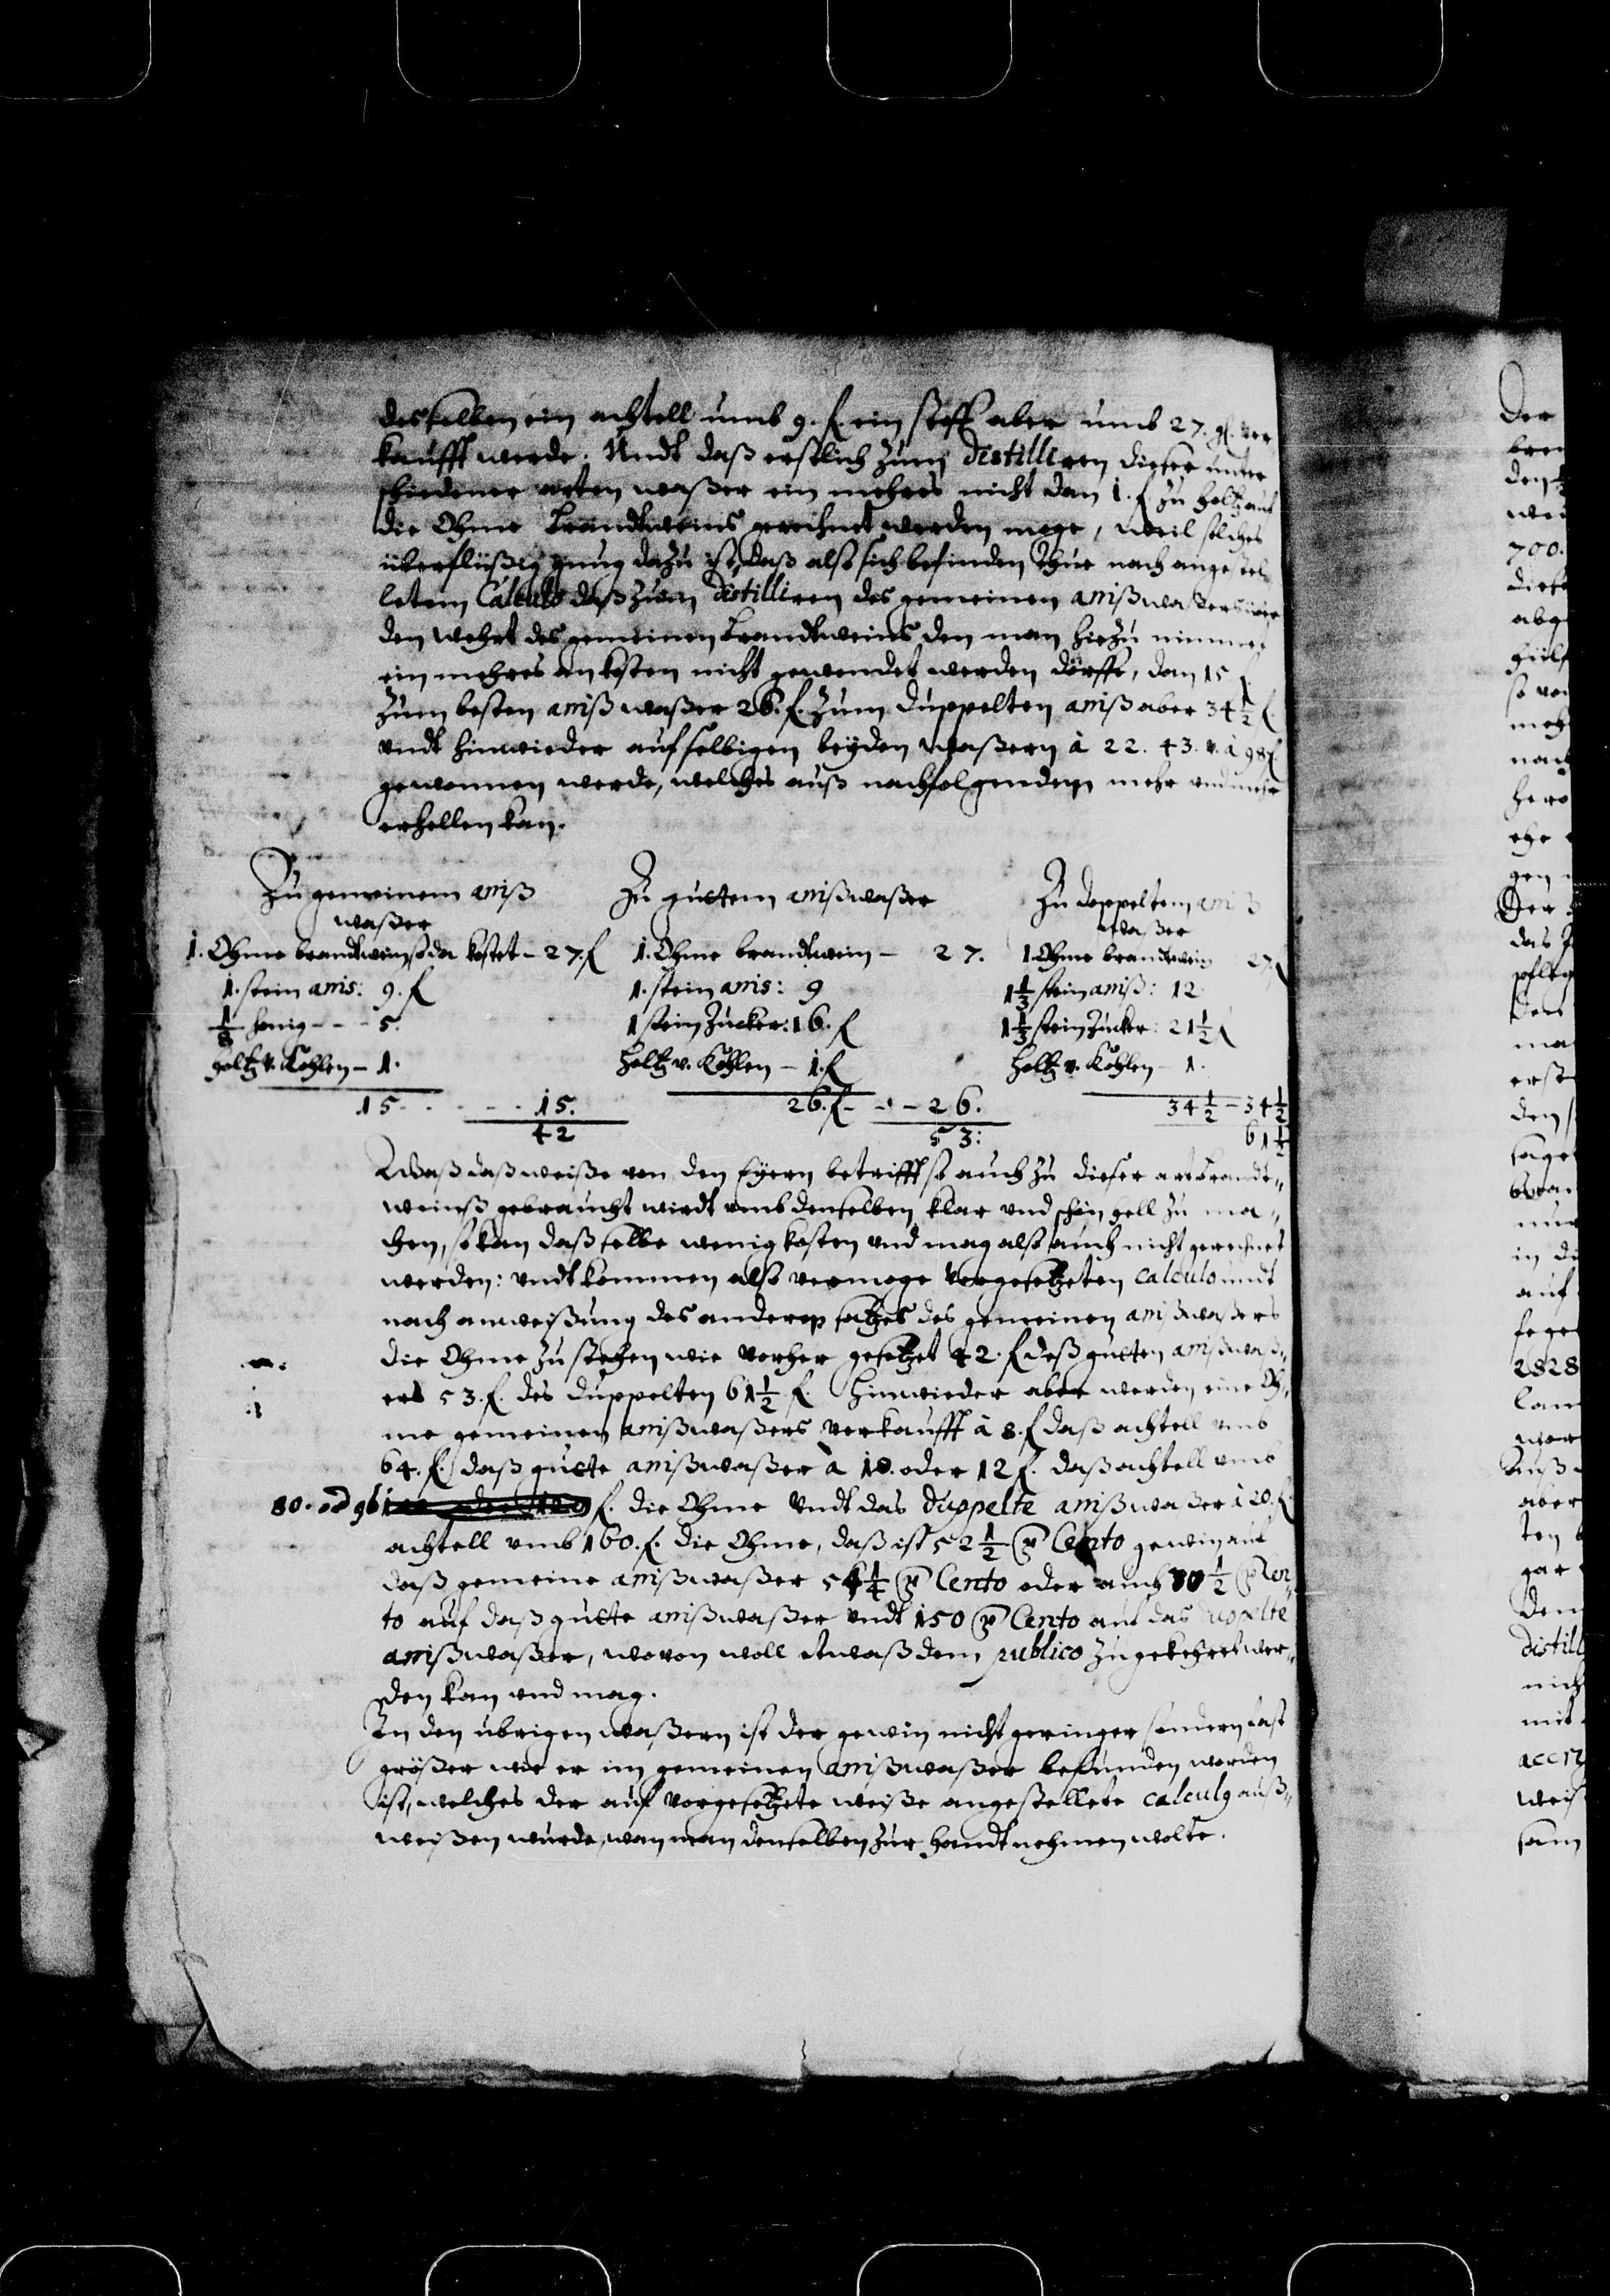 desselben ein achtell umb 9. f. ein stoff aber umb 27. gl. ver
kaufft werde. Undt daß erstlich zum Distilliren dieser unter
schiedener arten waßer ein mehres nicht dan 1. f. zu holtz auf
die Ohme Brandtweins gerechnet werden moge, weil solches
überflüßig gnug dazu ist, daß also sich befinden thue nach angestel
letem Calculo daß zum Distilliren des gemeinen anißwaßers
den wehrt des gemeinen Brandtweins den man hiezu nimmet
ein mehres an kosten nicht gewendet werden dörffe, dan 15 f.
zum besten anißwaßer 26. f. zum duppelten aniß aber 34 1/2 f.
undt hinwieder auf selbigen beyden waßern à 22. 43. v. à 98 f.
gewonnen werde, welches auß nachfolgendem mehr und mehr
erhellen kan.
Zu gemeinem aniß
waßer
1. Ohme brandtwein so da kostet - 27. f
1. stein anis: 9. f
1/8 honig - - - 5.
holtz v. Kohlen - 1.
15 - - - - - 15.
42
Zu guttem anißwaßer
1. Ohme brandtwein - 27.
1. stein anis: 9
1 stein Zucker: 16. f
holtz v. Kohlen - 1. f
26. f - - - 26.
53:
Zu doppeltem aniß
waßer
1 Ohme brandtwein 27. f
1 1/3 stein aniß: 12
1 1/3 stein Zucker: 21 1/2 f
holtz v. Kohlen - 1.
34 1/2 - 34 1/2
61 1/2
Waß daß weiße von den Eyern betrifft so auch zu dieser art brandt„
weinß gebraucht wirdt umb denselben klar und schön hell zu ma„
chen, so kan daßselbe wenig kosten und mag also auch nicht gerechnet
werden: undt kommen also vermoge vorgesetzeten calculo undt
nach anweißung des anderen satzes des gemeinen anißwaßers
die Ohme zu stehen wie vorher gesetzet 42. f deß gutten anißwaß„
ers 53. f. des duppelten 61 1/2 f. hinwieder aber werden eine Oh„
me gemeinen anißwaßers verkaufft à 8. f daß achtell umb
64. f. daß gutte anißwaßer à 10. oder 12 f. daß achtell umb
80. od 96 f. die Ohme Undt das duppelte anißwaßer à 20. f.
achtell umb 160. f. die Ohme, daß ist 52 1/2 p Cento gewin auf
daß gemeine anißwaßer 51 1/4 p Cento oder auch 80 1/2 p Cen
to auf daß gutte anißwaßer undt 150 p Cento auf das duppelte
anißwaßer, wovon woll etwaß dem publico zugekehret wer„
den kan und mag.
In den ubrigen waßern ist der gewin nicht geringer sondern fast
größer wie er im gemeinen anißwaßer befunden worden
ist, welches der auf vorgesetzete weiße angestellete calculg auß„
weißen wurde, wan man denselben zur handt nehmen wolte.
Der
700.
abg
nach
hero
ehe
gen
Der
das
pfleg
ma
erst
den
sage
in di
auf
2828
aber
ten
gar
Dem
distill
nich
mit
weis